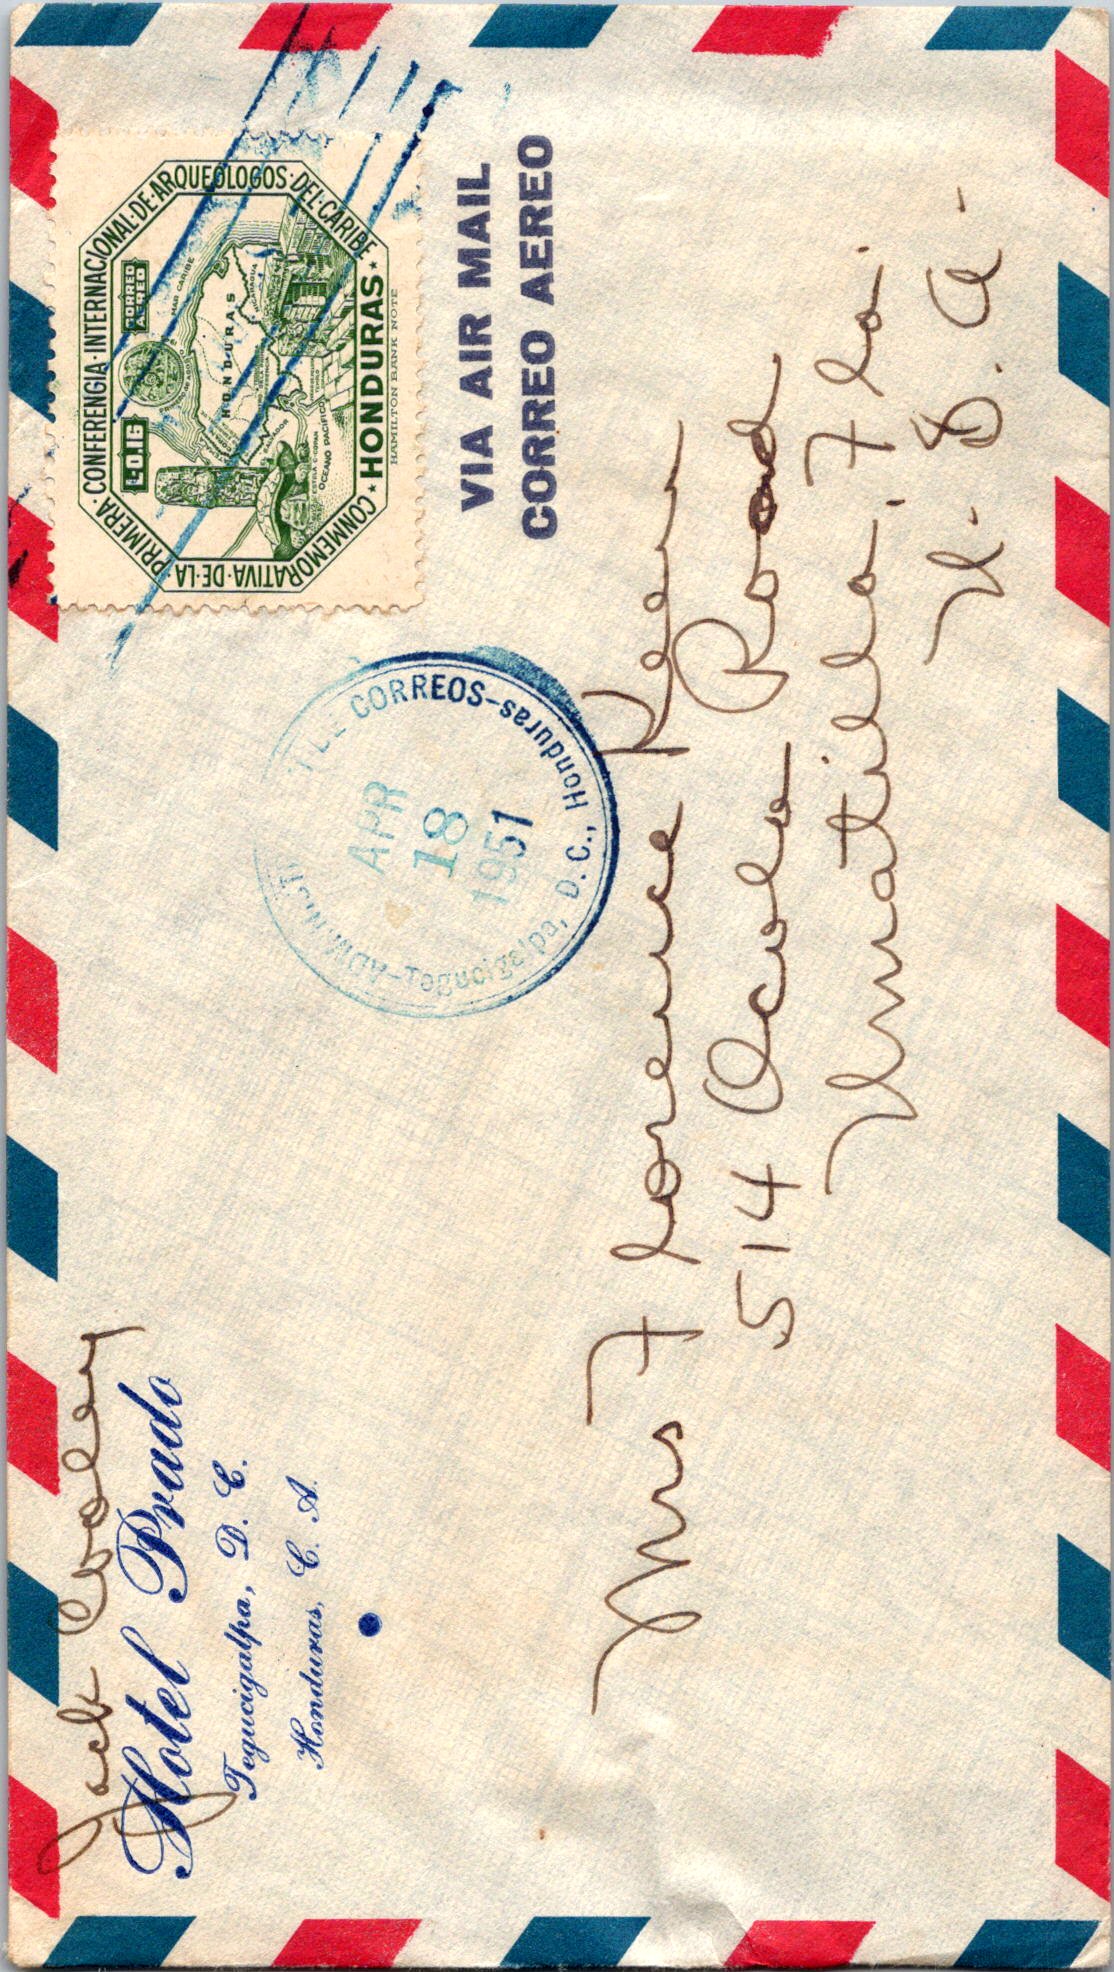 Jack Cooley
Hotel Prado
Tegucigalpa, D. C.
Honduras, C. A.
CONMEMORATIVA·DE·LA·PRIMERA·CONFERENCIA·INTERNACIONAL·DE·ARQUEOLOGOS·DEL·CARIBE
L 0.16
CORREO
AEREO
MAR CARIBE
HONDURAS
NICARAGUA
OCEANO PACIFICO
★HONDURAS★
HAMILTON BANK NOTE
DE CORREOS-Honduras
ADMINIST
Tegucigalpa, D.C.,
APR
18
1951
VIA AIR MAIL
CORREO AEREO
Mrs Florence Kerr
514 Ocala Road
Umatilla, Fla.
U. S. A.